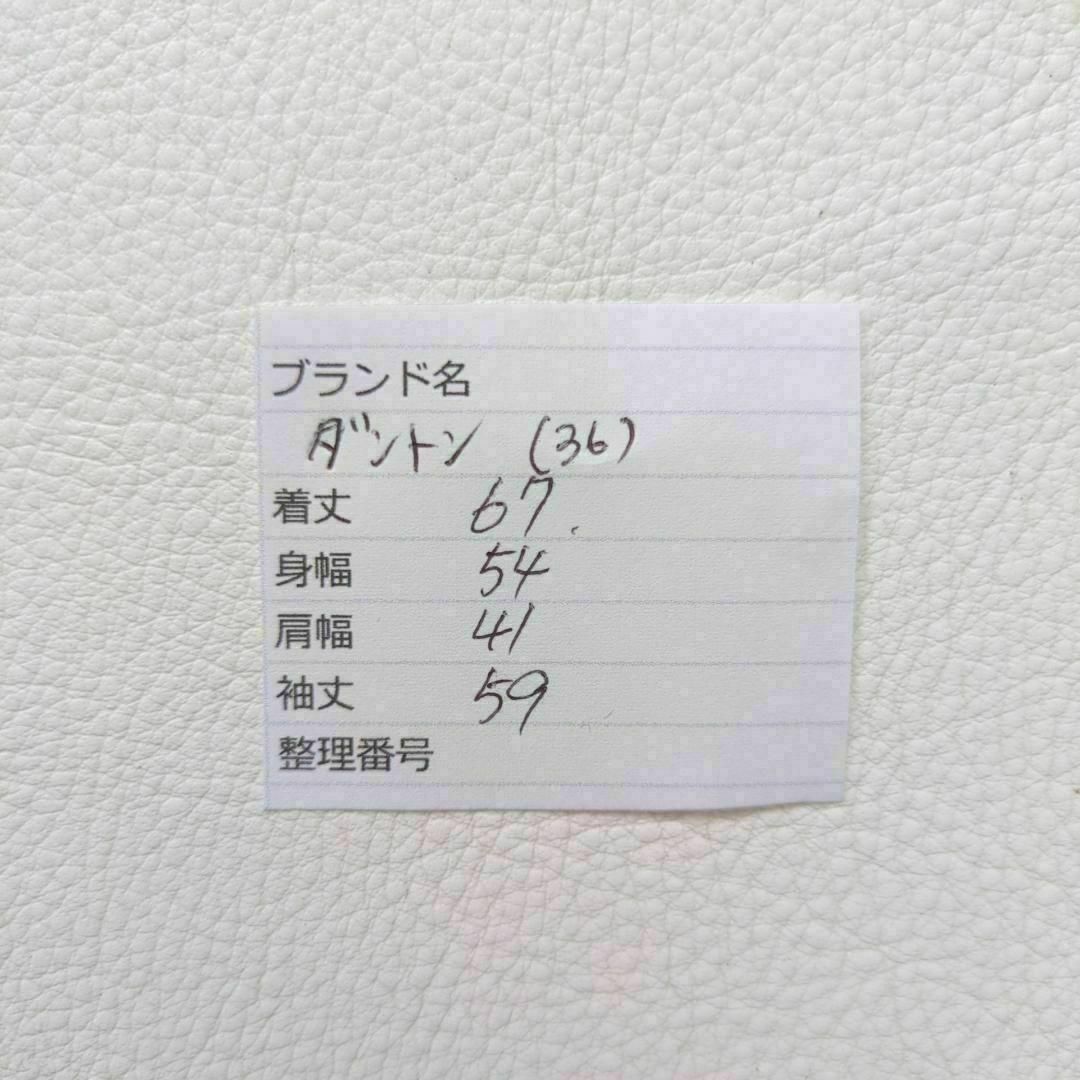 ブランド名
ダントン (36)
着丈 67.
身幅 54
肩幅 41
袖丈 59
整理番号